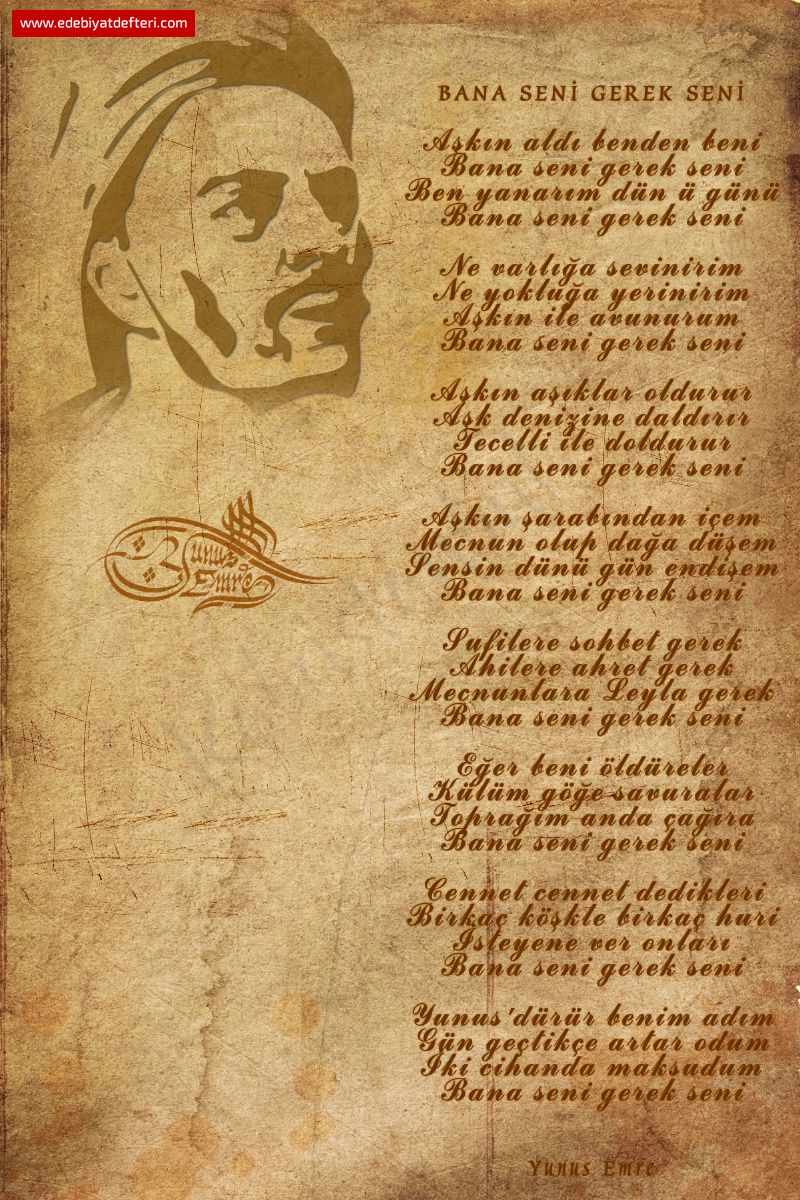 www.edebiyatdefteri.com
BANA SENİ GEREK SENİ
Aşkın aldı benden beni
Bana seni gerek seni
Ben yanarım dün ü günü
Bana seni gerek seni
Ne varlığa sevinirim
Ne yokluğa yerinirim
Aşkın ile avunurum
Bana seni gerek seni
Aşkın aşıklar oldurur
Aşk denizine daldırır
Tecelli ile doldurur
Bana seni gerek seni
Aşkın şarabından içem
Mecnun olup dağa düşem
Sensin dünü gün endişem
Bana seni gerek seni
Sufilere sohbet gerek
Ahilere ahret gerek
Mecnunlara Leyla gerek
Bana seni gerek seni
Eğer beni öldüreler
Külüm göğe savuralar
Toprağım anda çağıra
Bana seni gerek seni
Cennet cennet dedikleri
Birkaç köşkle birkaç huri
İsteyene ver onları
Bana seni gerek seni
Yunus'dürür benim adım
Gün geçtikçe artar odum
İki cihanda maksudum
Bana seni gerek seni
Yunus Emre
Yunus
Emre